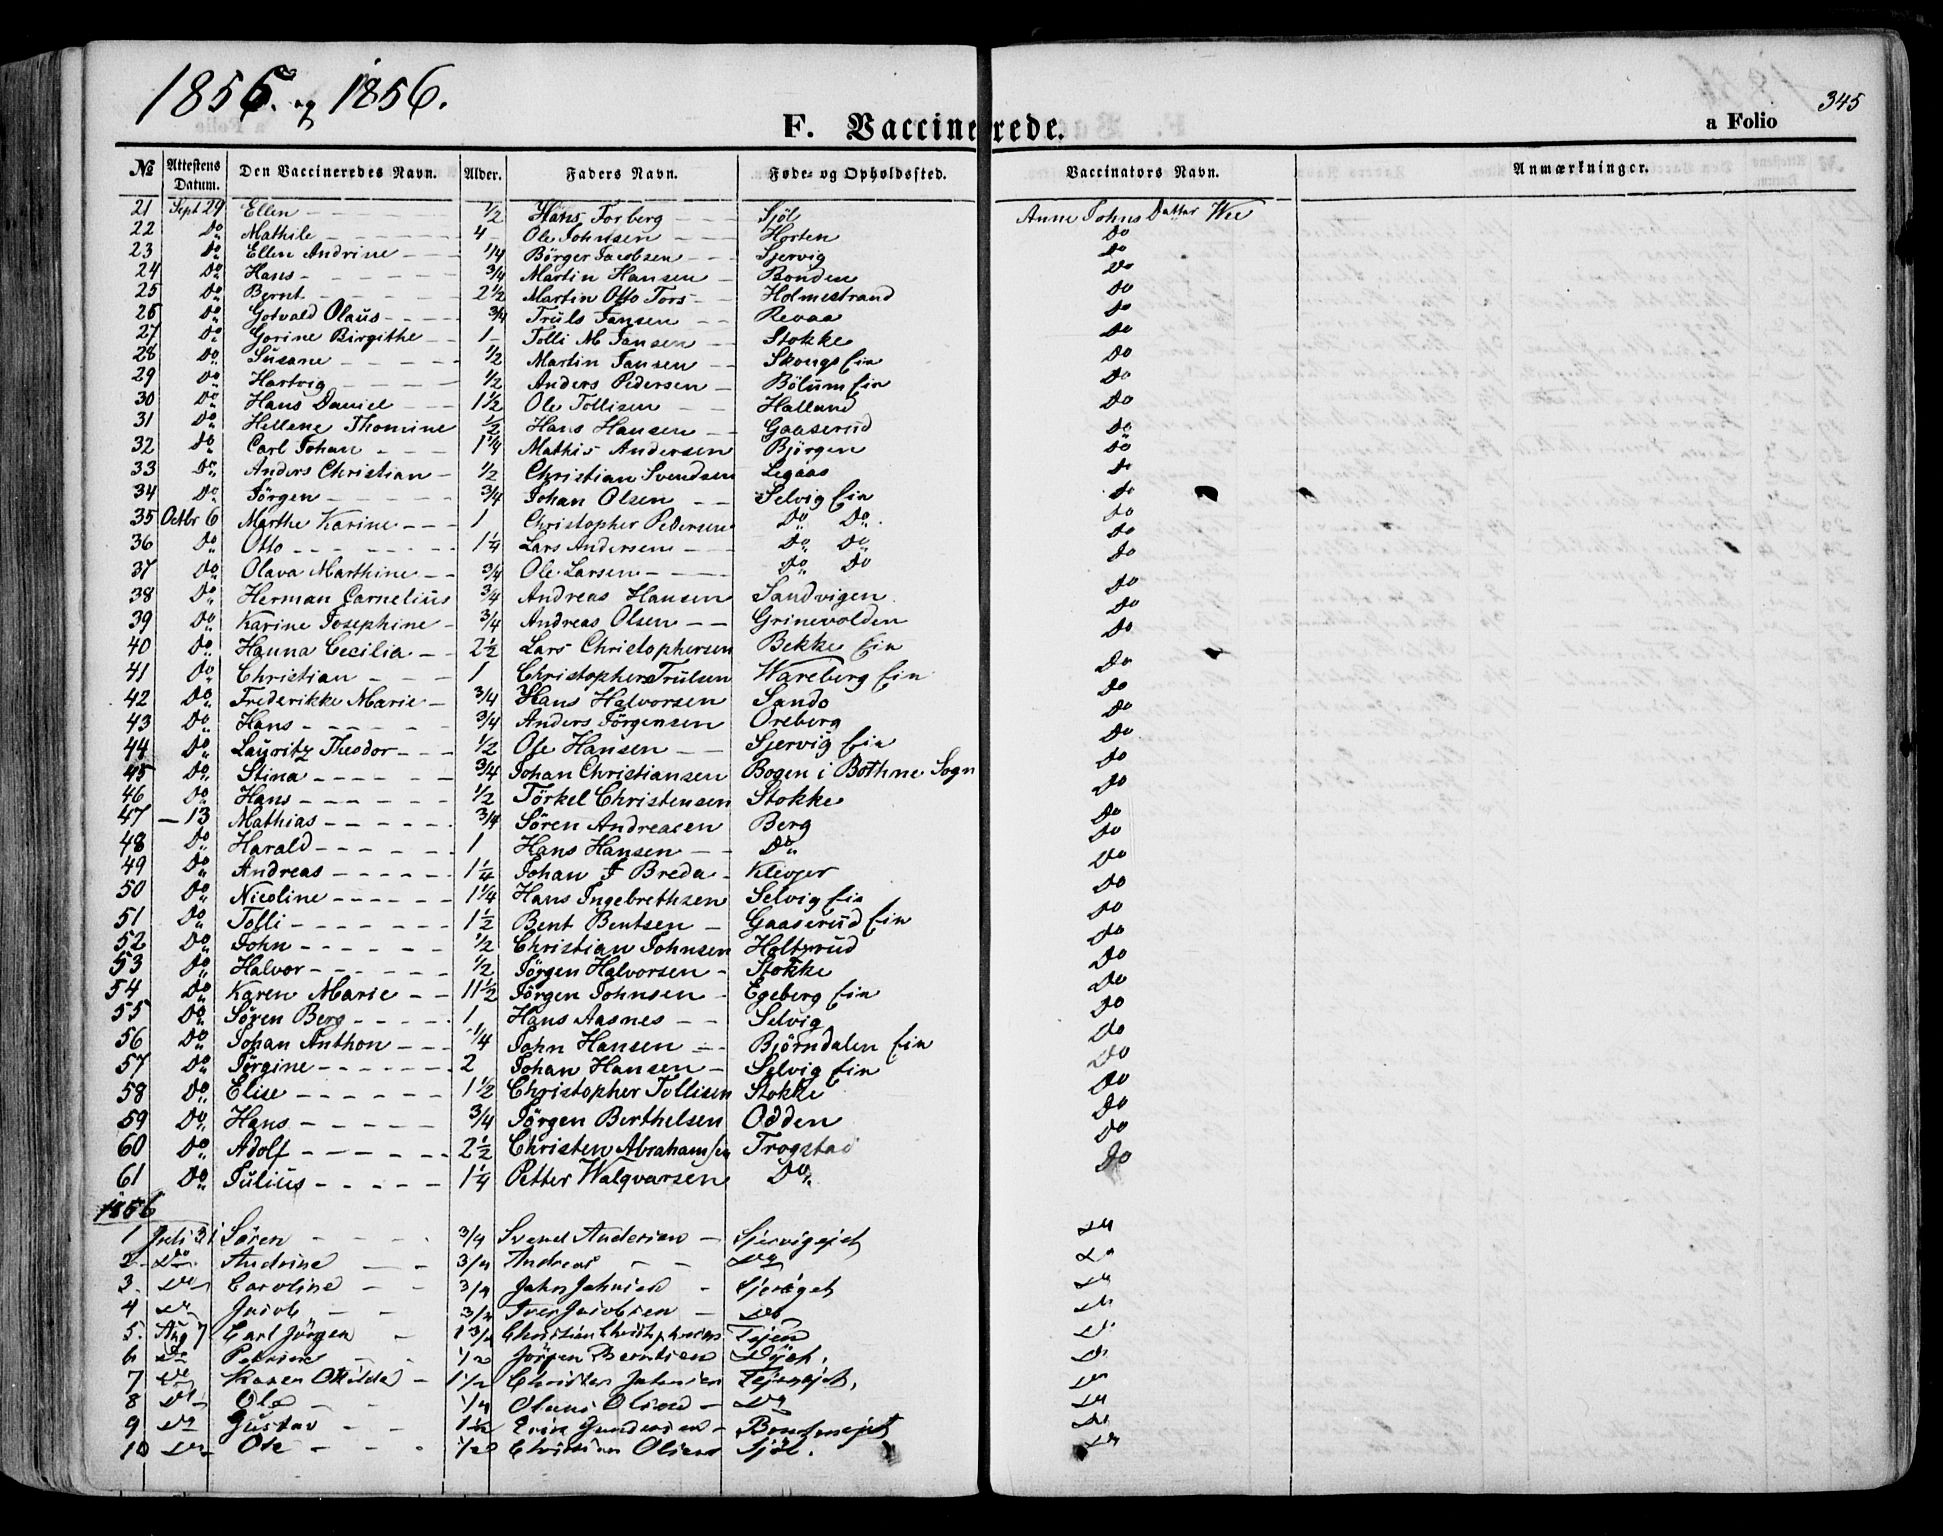 1855. og 1856.
345
F. Vaccinerede.
a Folio
№ Attestens Datum. Den Vaccineredes Navn. Alder. Faders Navn. Føde- og Opholdssted. Vaccinators Navn. Anmærkninger.
21 Sept 29 Ellen ½ Hans Forberg Sjöl Anne Johns Datter Wee
22 Do Mathile 4 Ole Johnsen Horten Do
23 Do Ellen Andrine ¼ Börger Jacobsen Sjervig Do
24 Do Hans ¾ Martin Hansen Bonden Do
25 Do Bernt 2½ Martin Otto Tors Holmestrand Do
26 Do Gotvald Olaus ¾ Truls Jansen Revaa Do
27 Do Gorine Birgithe 1 Tolli M Jansen Stokke Do
28 Do Susane ½ Martin Jansen Skougs Ein Do
29 Do Hartvig ½ Anders Pedersen Bölum Ein Do
30 Do Hans Daniel 1½ Ole Tollisen Halland Do
31 Do Hellene Thomine ½ Hans Hansen Gaaserud Do
32 Do Carl Johan 1¼ Mathis Andersen Björgen Do
33 Do Anders Christian ½ Christian Svendsen Legaas Do
34 Do Jörgen ¾ Johan Olsen Selvig Ein Do
35 Octbr 6 Marthe Karine 1 Christopher Pedersen Do Do Do
36 Do Otto 1¼ Lars Andersen Do Do Do
37 Do Olava Marthine ¾ Ole Larsen Do Do Do
38 Do Herman Carnelius ¾ Andreas Hansen Sandvigen Do
39 Do Karine Josephine ¾ Andreas Olsen Grinevolden Do
40 Do Hanna Cecilia 2½ Lars Christophersen Bekke Ein Do
41 Do Christian 1 Christopher Trulsen Wareberg Ein Do
42 Do Frederikke Marie ¾ Hans Halvorsen Sando Do
43 Do Hans ¾ Anders Jörgensen Oreberg Do
44 Do Lauritz Theodor ½ Ole Hansen Sjervig Ein Do
45 Do Stina ¾ Johan Christiansen Bogen i Bothne Sogn Do
46 Do Hans ½ Törkel Christensen Stokke Do
47 – 13 Mathias ¾ Sören Andreasen Berg Do
48 Do Harald 1 Hans Hansen Do Do
49 Do Andreas 1¼ Johan F Breda Klevjer Do
50 Do Nicoline 1¼ Hans Ingebrethsen Selvig Ein Do
51 Do Tolli 1½ Bent Bentsen Gaaserud Ein Do
52 Do John ½ Christian Johnsen Holtzrud Do
53 Do Halvor ½ Jörgen Halvorsen Stokke Do
54 Do Karen Marie 11½ Jörgen Johnsen Egeberg Ein Do
55 Do Sören Berg 1 Hans Aasnes Selvig Do
56 Do Johan Anthon ¼ John Hansen Björndalen Ein Do
57 Do Jörgine 2 Johan Hansen Selvig Ein Do
58 Do Elise 1½ Christopher Tollisen Stokke Do
59 Do Hans ¾ Jörgen Berthelsen Odden Do
60 Do Adolf 2½ Christen Abrahamsen Trogstad Do
61 Do Julius 1¼ Petter Walqvarsen Do Do
1856
1 Juli 31 Sören ¾ Svend Andersen Sjervigejet Do
2 Do Andrine ¾ Andreas Do Do
3 Do Caroline ¾ John Johnsen Do
4 Do Jacob Iver Jacobsen Do Do
5 Aug 7 Carl Jörgen Christian Christophersen Tejen Do
6 Do Petrine ½ Jörgen Berntsen Do
7 Do Karen Otilde 1½ Christen Johnsen Tejenejet Do
8 Do Ole ¼ Olaus Olsen Do Do
9 Do Gustav 1½ Erik Gundersen Do
10 Do Ole ½ Christian Olsen Sjöl. Do